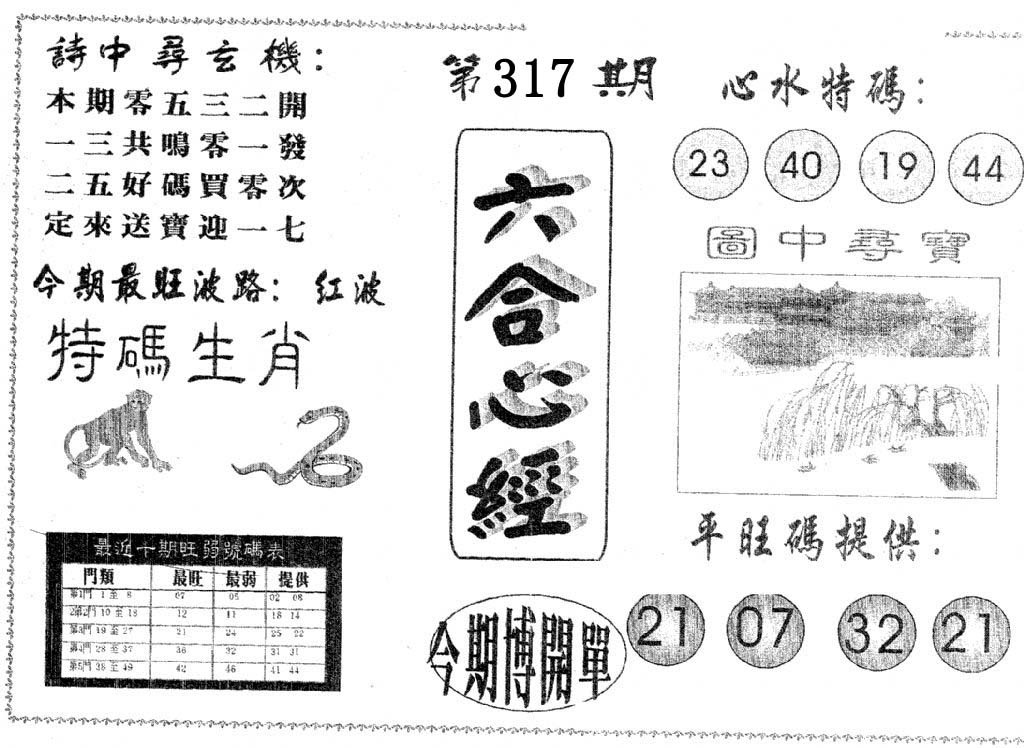 詩中尋玄機：
本期零五三二開
一三共鳴零一發
二五好碼買零次
定來送寶迎一七
今期最旺波路：红波
特碼生肖
最近十期旺弱號碼表
門類 最旺 最弱 提供
第1門 1至8 07 05 02 08
第2門 10至18 12 11 18 14
第3門 19至27 21 24 25 22
第4門 28至37 36 32 31 31
第5門 38至49 42 46 41 44
第317期
六合心經
今期博開單
心水特碼：
23 40 19 44
圖中尋寶
平旺碼提供：
21 07 32 21